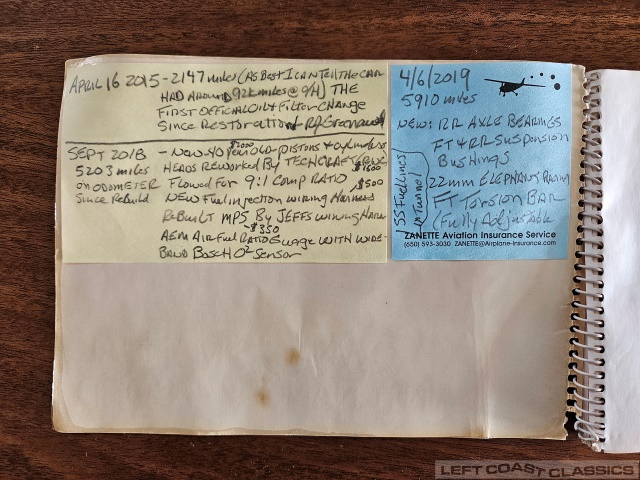 APRIL 16 2015 - 2147 miles (AS Best I CAN Tell THE CAR
HAD AROUND 92K miles @ 9/14) THE
FIRST OFFICIAL Oil & Filter Change
SINCE Restoration
SEPT 2018 - New 40 year OLD PISTONS & cylinders
$2000
5203 miles
HEADS REWORKED BY TECHCRAFT
$1600
on ODOMETER
Flowed For 9:1 Comp RATIO
$500
Since Rebuild
NEW Fuel injection wiring Harness
ReBuilt MPS By JEFFS wiring
~$350
AEM AIR Fuel RATIO Guage WITH WIDE
BAND BoscH O2 Sensor
4/6/2019
5910 miles
NEW: RR AXLE BEARINGS
FT & RR Suspension
Bushings
22mm ELEPHANT RACING
FT Torsion BAR
(Fully Adjustable
SS Fuel Lines
in Tunnel
ZANETTE Aviation Insurance Service
(650) 593-3030 ZANETTE@Airplane-Insurance.com
LEFT COAST CLASSICS